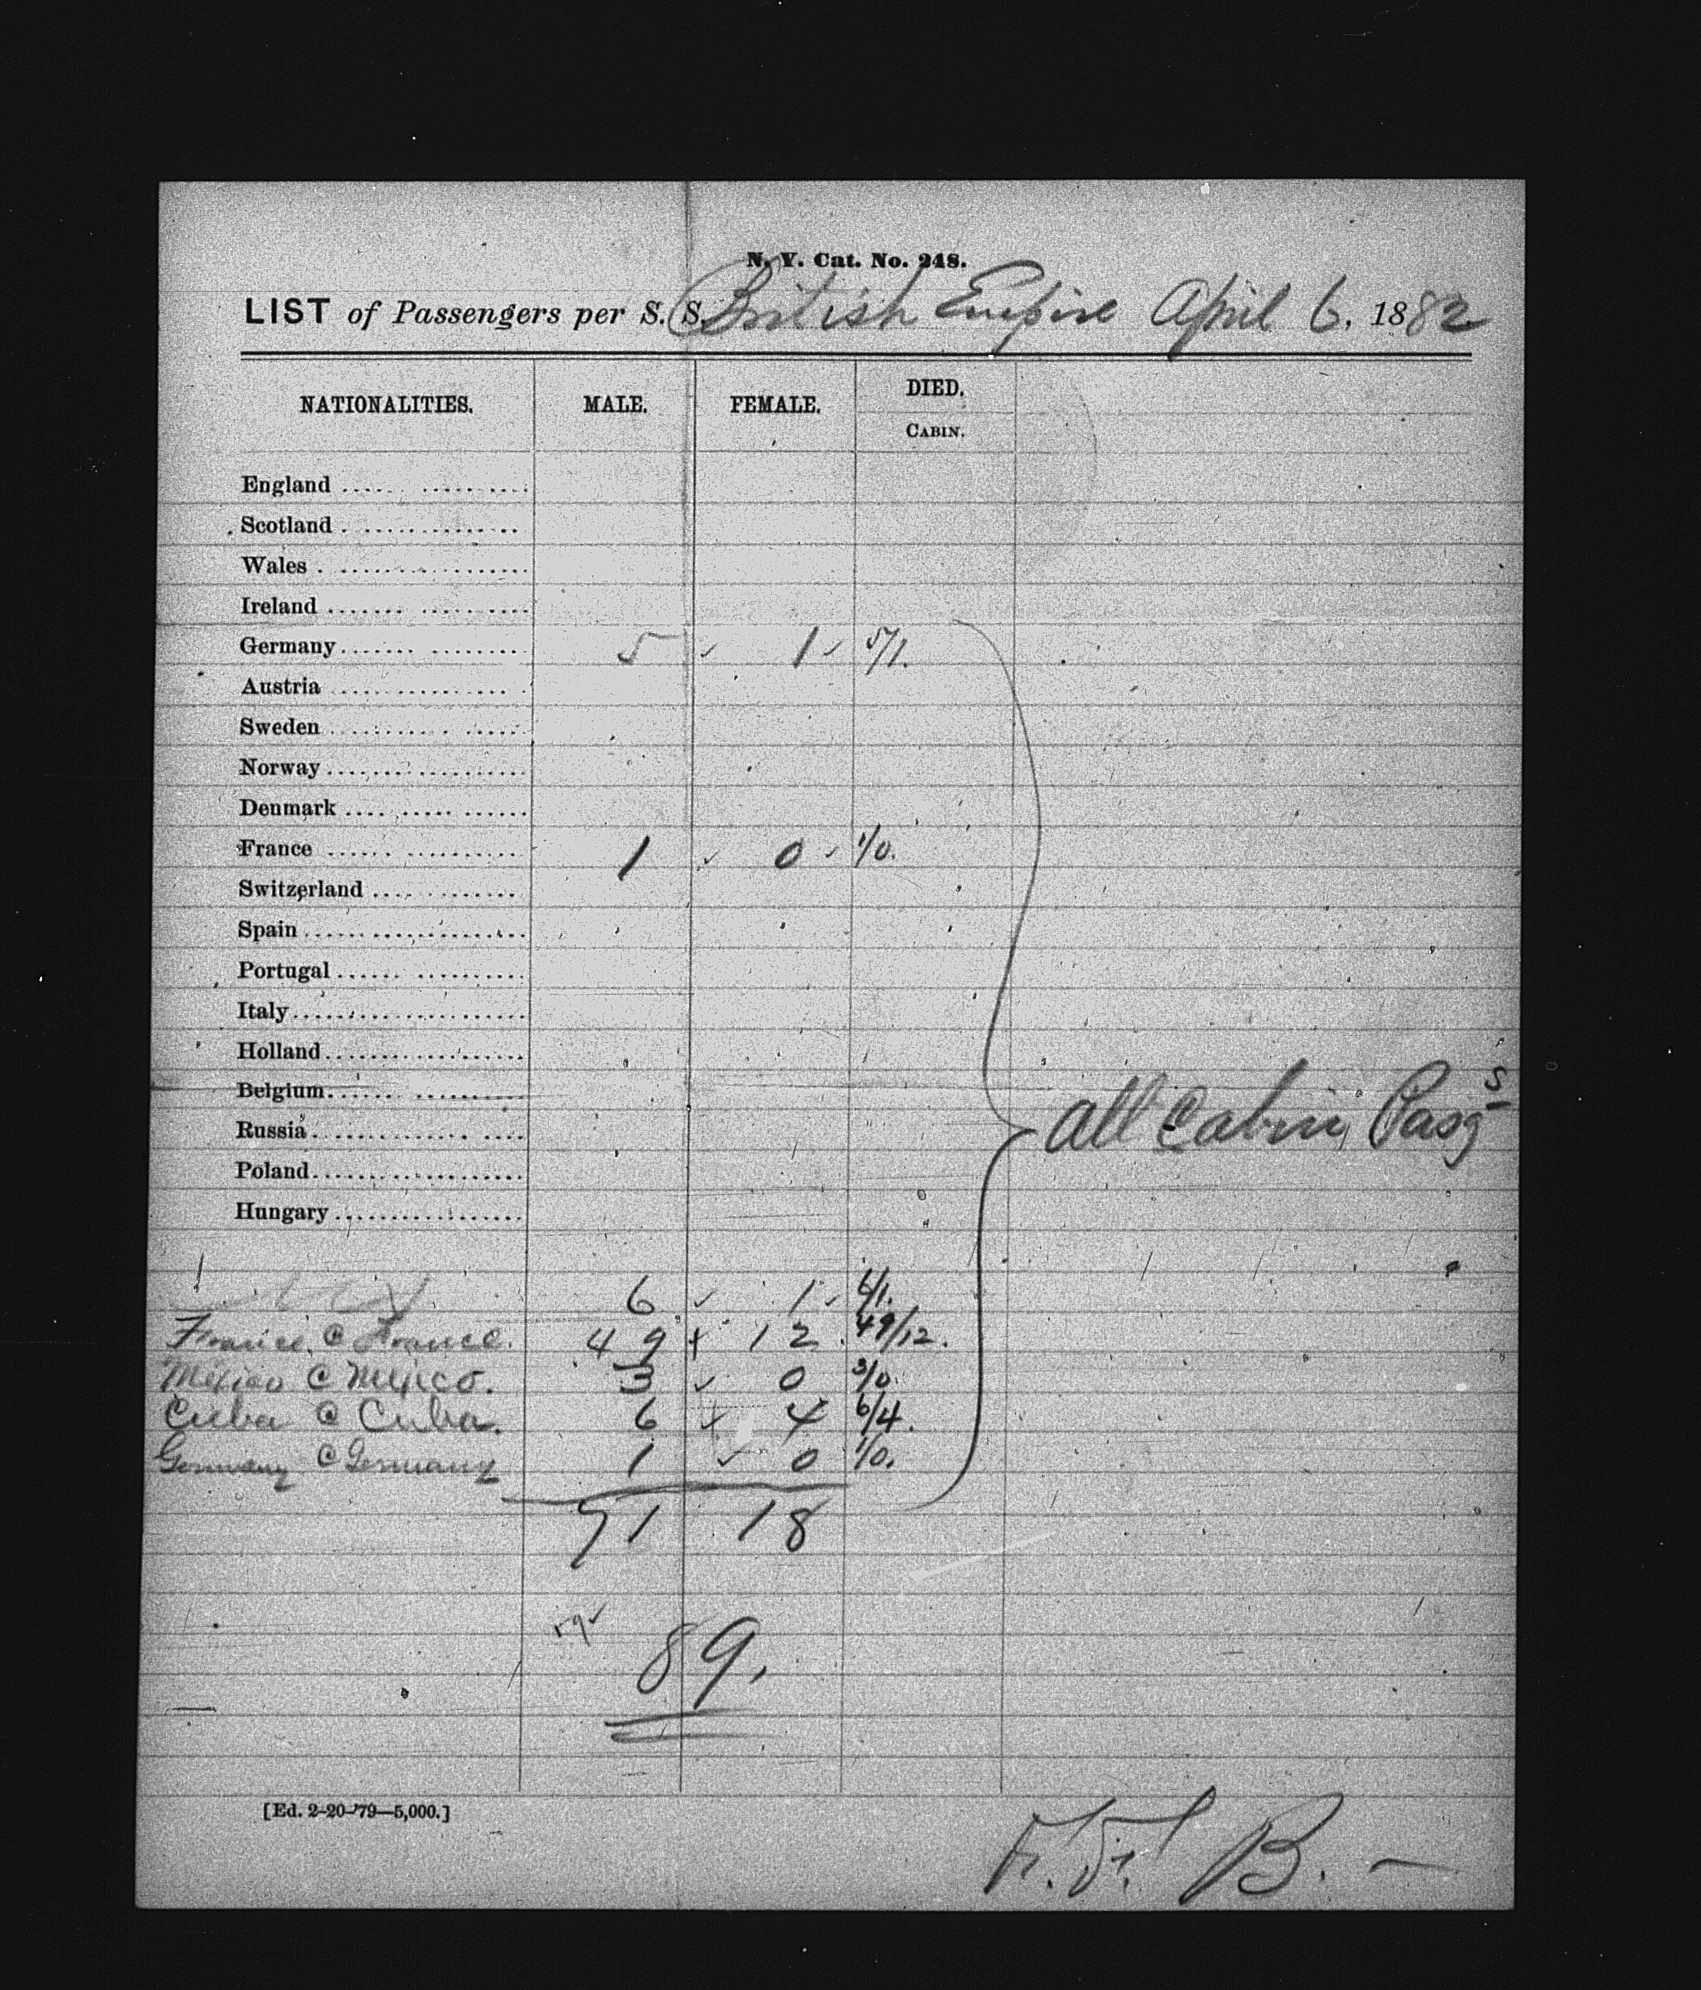 N. Y. Cat. No. 248.
LIST of Passengers per S. S. British Empire April 6, 1882
NATIONALITIES. MALE. FEMALE. DIED.
CABIN.
England
Scotland
Wales
Ireland
Germany 5 ✓ 1 ✓ 5/1.
Austria
Sweden
Norway
Denmark
France 1 ✓ 0 ✓ 1/0.
Switzerland
Spain
Portugal
Italy
Holland
Belgium
Russia
Poland
Hungary
All Cabin Pasgs
6 ✓ 1 ✓ 6/1.
France @ France. 49 12 49/12.
Mexico @ Mexico. 3 ✓ 0 3/0.
Cuba @ Cuba. 6 ✓ 4 6/4.
Germany @ Germany 1 ✓ 0 1/0.
71 18
89.
[Ed. 2-20-'79—5,000.]
B.